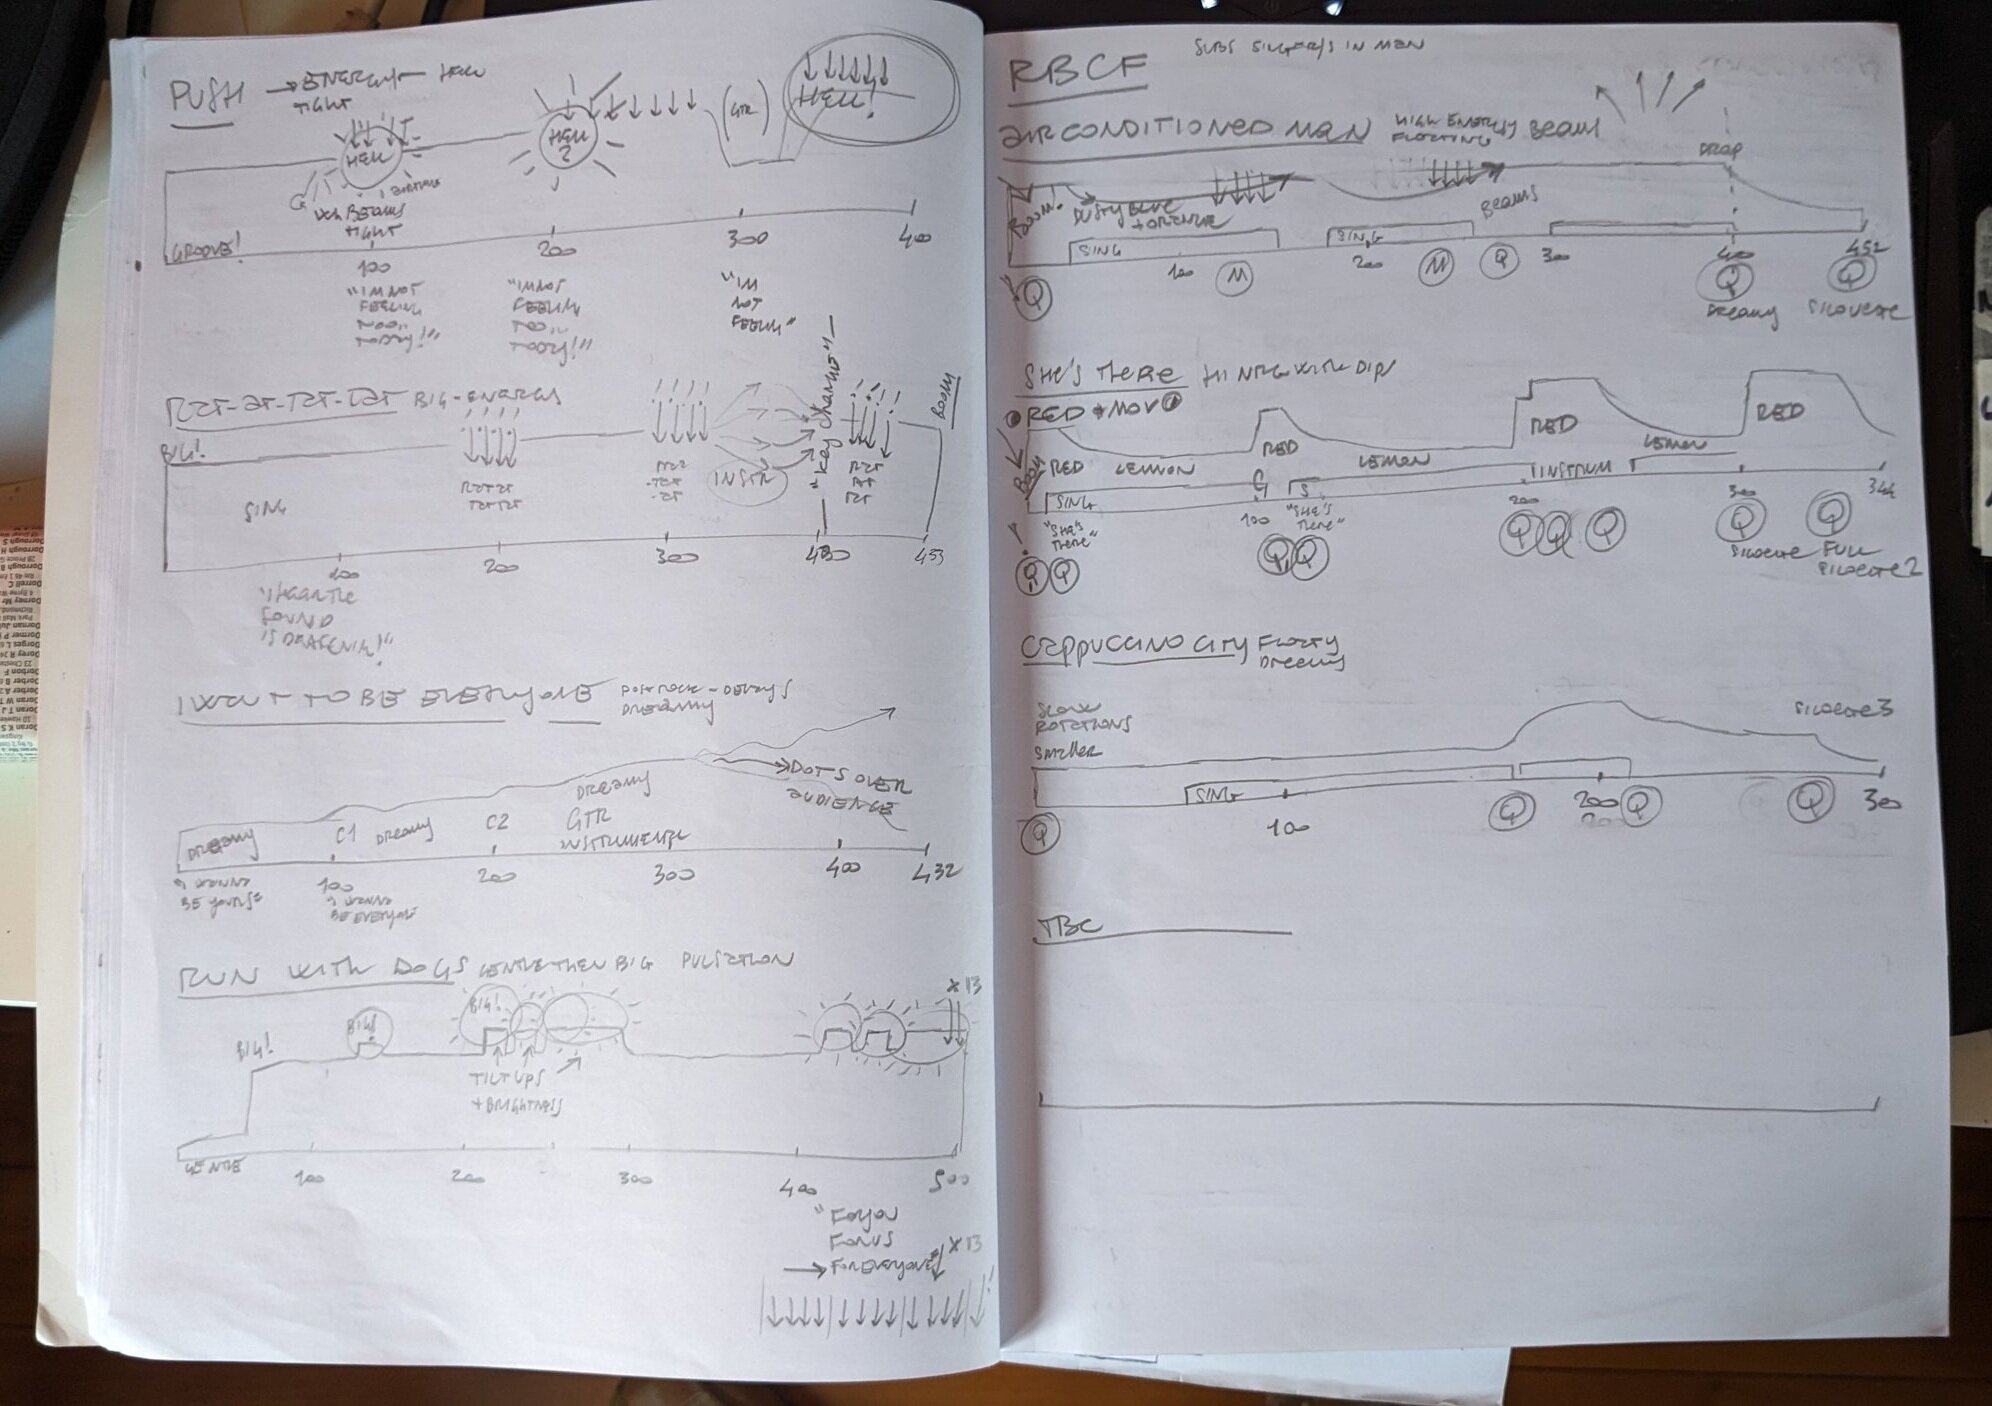 PUSH → ENERGY
TIGHT
HELL
HELL
2
(GTR)
HELL!
BEAMS
TIGHT
GROOVE!
100
200
300
400
"IM NOT
FEELING
"IM NOT
FEELING
"IM
NOT
FEELIN"
RAT-AT-TAT-TAT BIG-ENERGY
BIG!
SING
RATAT
TATTAT
RAT
-TAT
-AT
INSTR
"KEY CHANGE"
RAT
AT
TAT
BOOM
100
200
300
400
453
I WANT TO BE EVERYONE
DREAMY
DREAMY
C1
DREAMY
C2
DREAMY
GTR
INSTRUMENTAL
→ DOTS OVER
AUDIENCE
100
200
300
400
432
BE YOURS"
BE EVERYONE
RUN WITH DOGS GENTLE THEN BIG PULSATION
BIG!
BIG!
BIG!
x 13
TILT UPS
+ BRIGHTNESS
GENTLE
100
200
300
400
500
"FOR YOU
FOR US
→ FOR EVERYONE"
x 13
RBCF
SUBS SINGER/S IN MAN
AIR CONDITIONED MAN
HIGH ENERGY BEAMS
FLOATING
DROP
BOOM!
DUSTY BLUE
+ ORANGE
BEAMS
SING
SING
100
200
300
400
452
Q
M
M
Q
Q
Q
DREAMY
SILOUETE
SHE'S THERE HI NRG WITH DIPS
RED + MOV
BOOM
RED
LEMON
RED
LEMON
RED
LEMON
RED
SING
G
S
INSTRUM
100
200
300
344
"SHE'S
THERE"
"SHE'S
THERE"
Q
Q
Q
Q
Q
Q
Q
Q
Q
SILOUETE
FULL
SILOUETE 2
CAPPUCCINO CITY FLOATY
DREAMY
SLOW
ROTATIONS
SMALLER
SILOUETE 3
SING
100
200
300
Q
Q
Q
Q
TBC